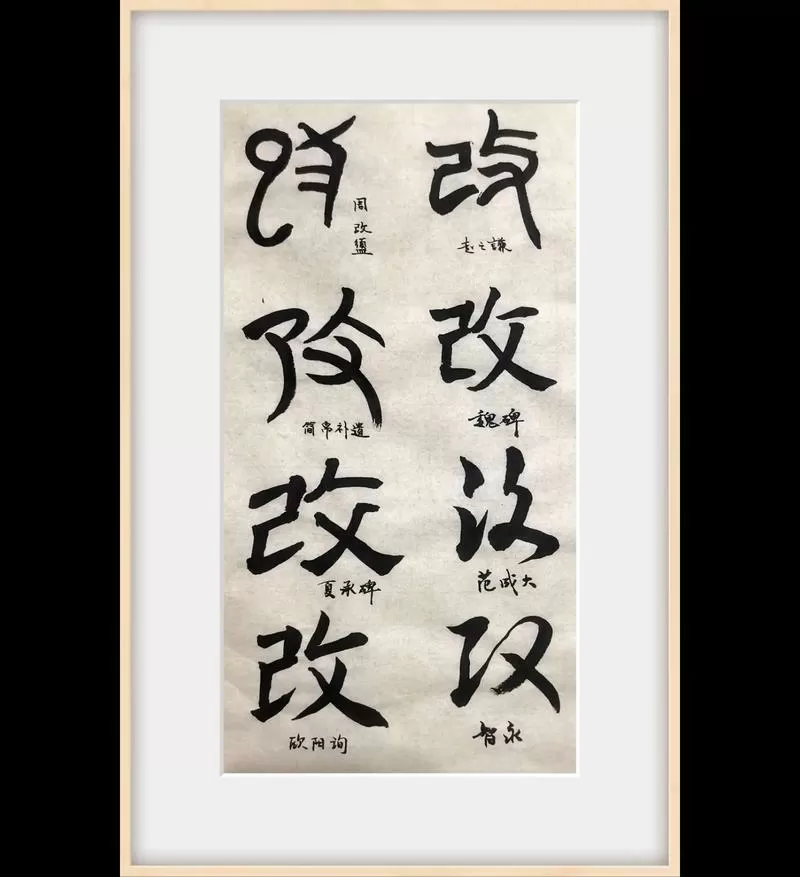 改
赵之謙
改
魏碑
改
范成大
改
智永
改
周改盨
改
简帛补遗
改
夏承碑
改
欧阳询